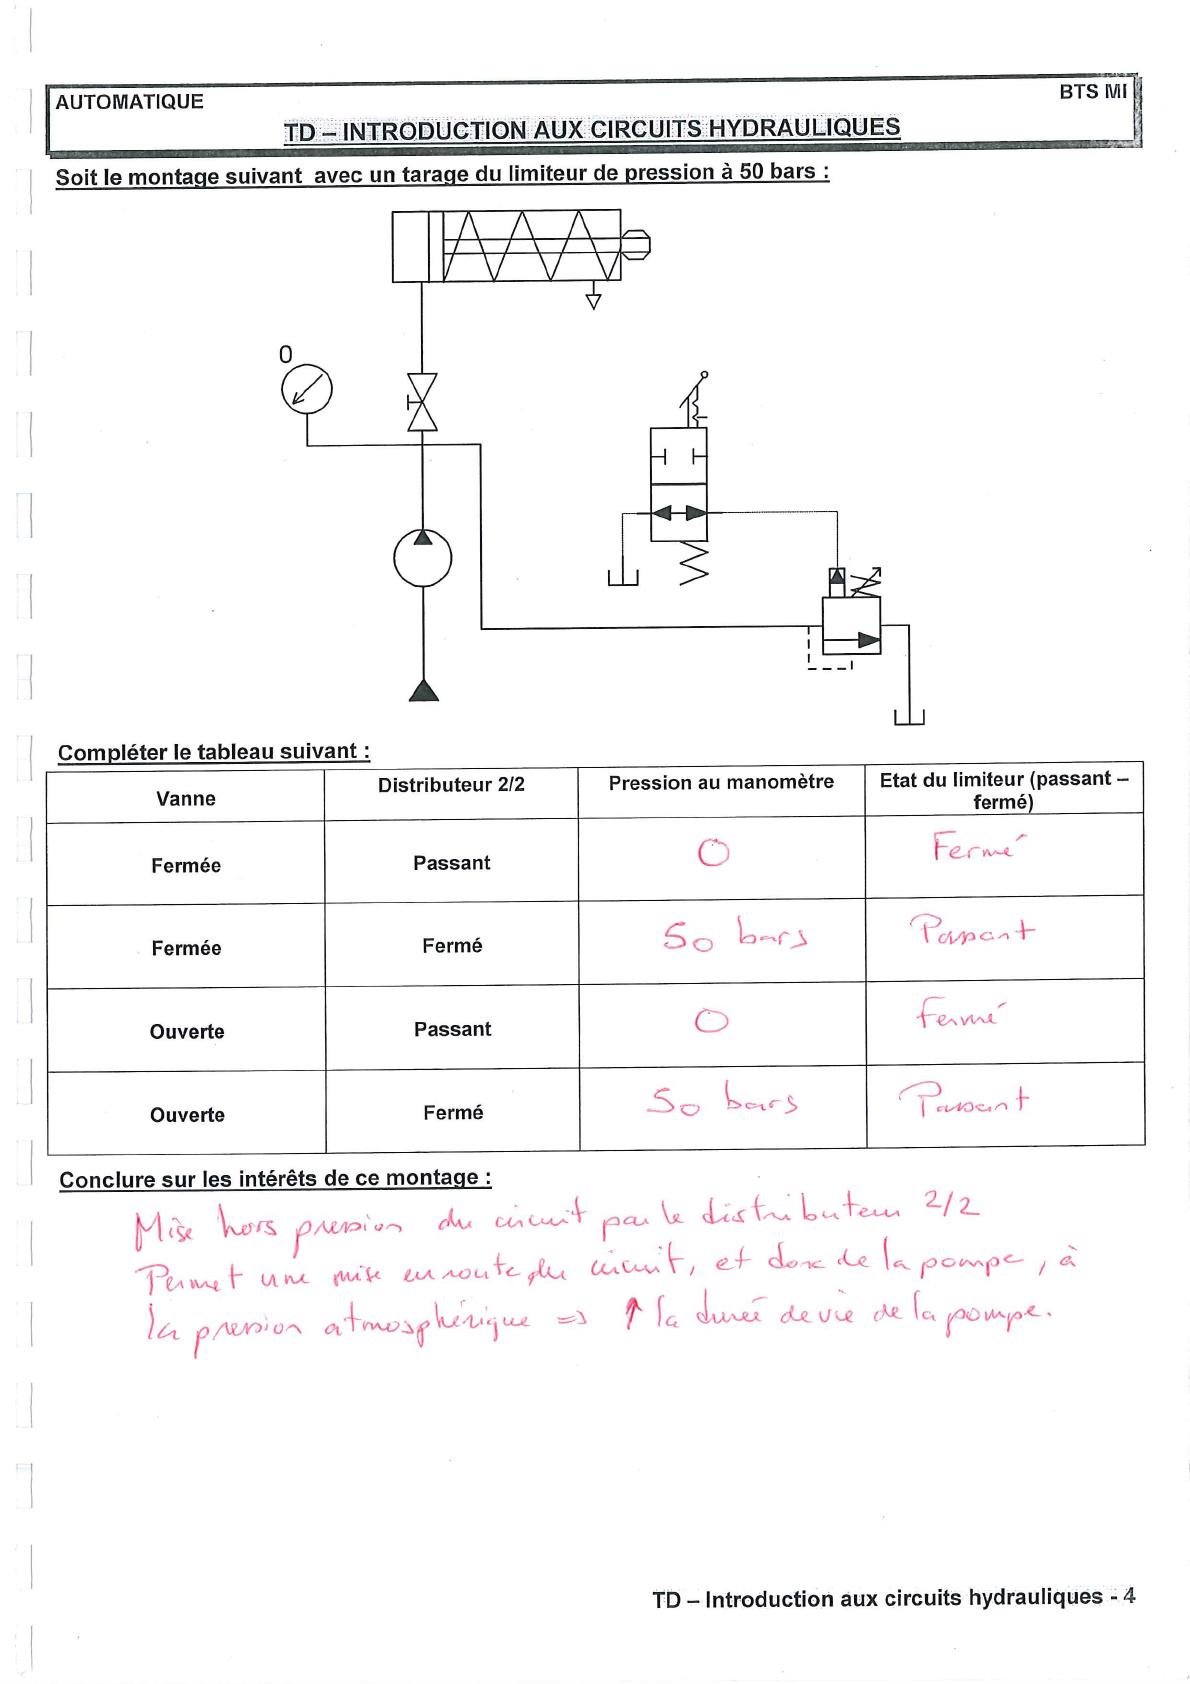 AUTOMATIQUE
BTS MI
TD – INTRODUCTION AUX CIRCUITS HYDRAULIQUES
Soit le montage suivant avec un tarage du limiteur de pression à 50 bars :
0
Compléter le tableau suivant :
Vanne Distributeur 2/2 Pression au manomètre Etat du limiteur (passant –
fermé)
Fermée Passant 0 Fermé
Fermée Fermé 50 bars Passant
Ouverte Passant 0 Fermé
Ouverte Fermé 50 bars Passant
Conclure sur les intérêts de ce montage :
Mise hors pression du circuit par le distributeur 2/2
Permet une mise en route du circuit, et donc de la pompe, à
la pression atmosphérique => ↑ la durée de vie de la pompe.
TD – Introduction aux circuits hydrauliques - 4